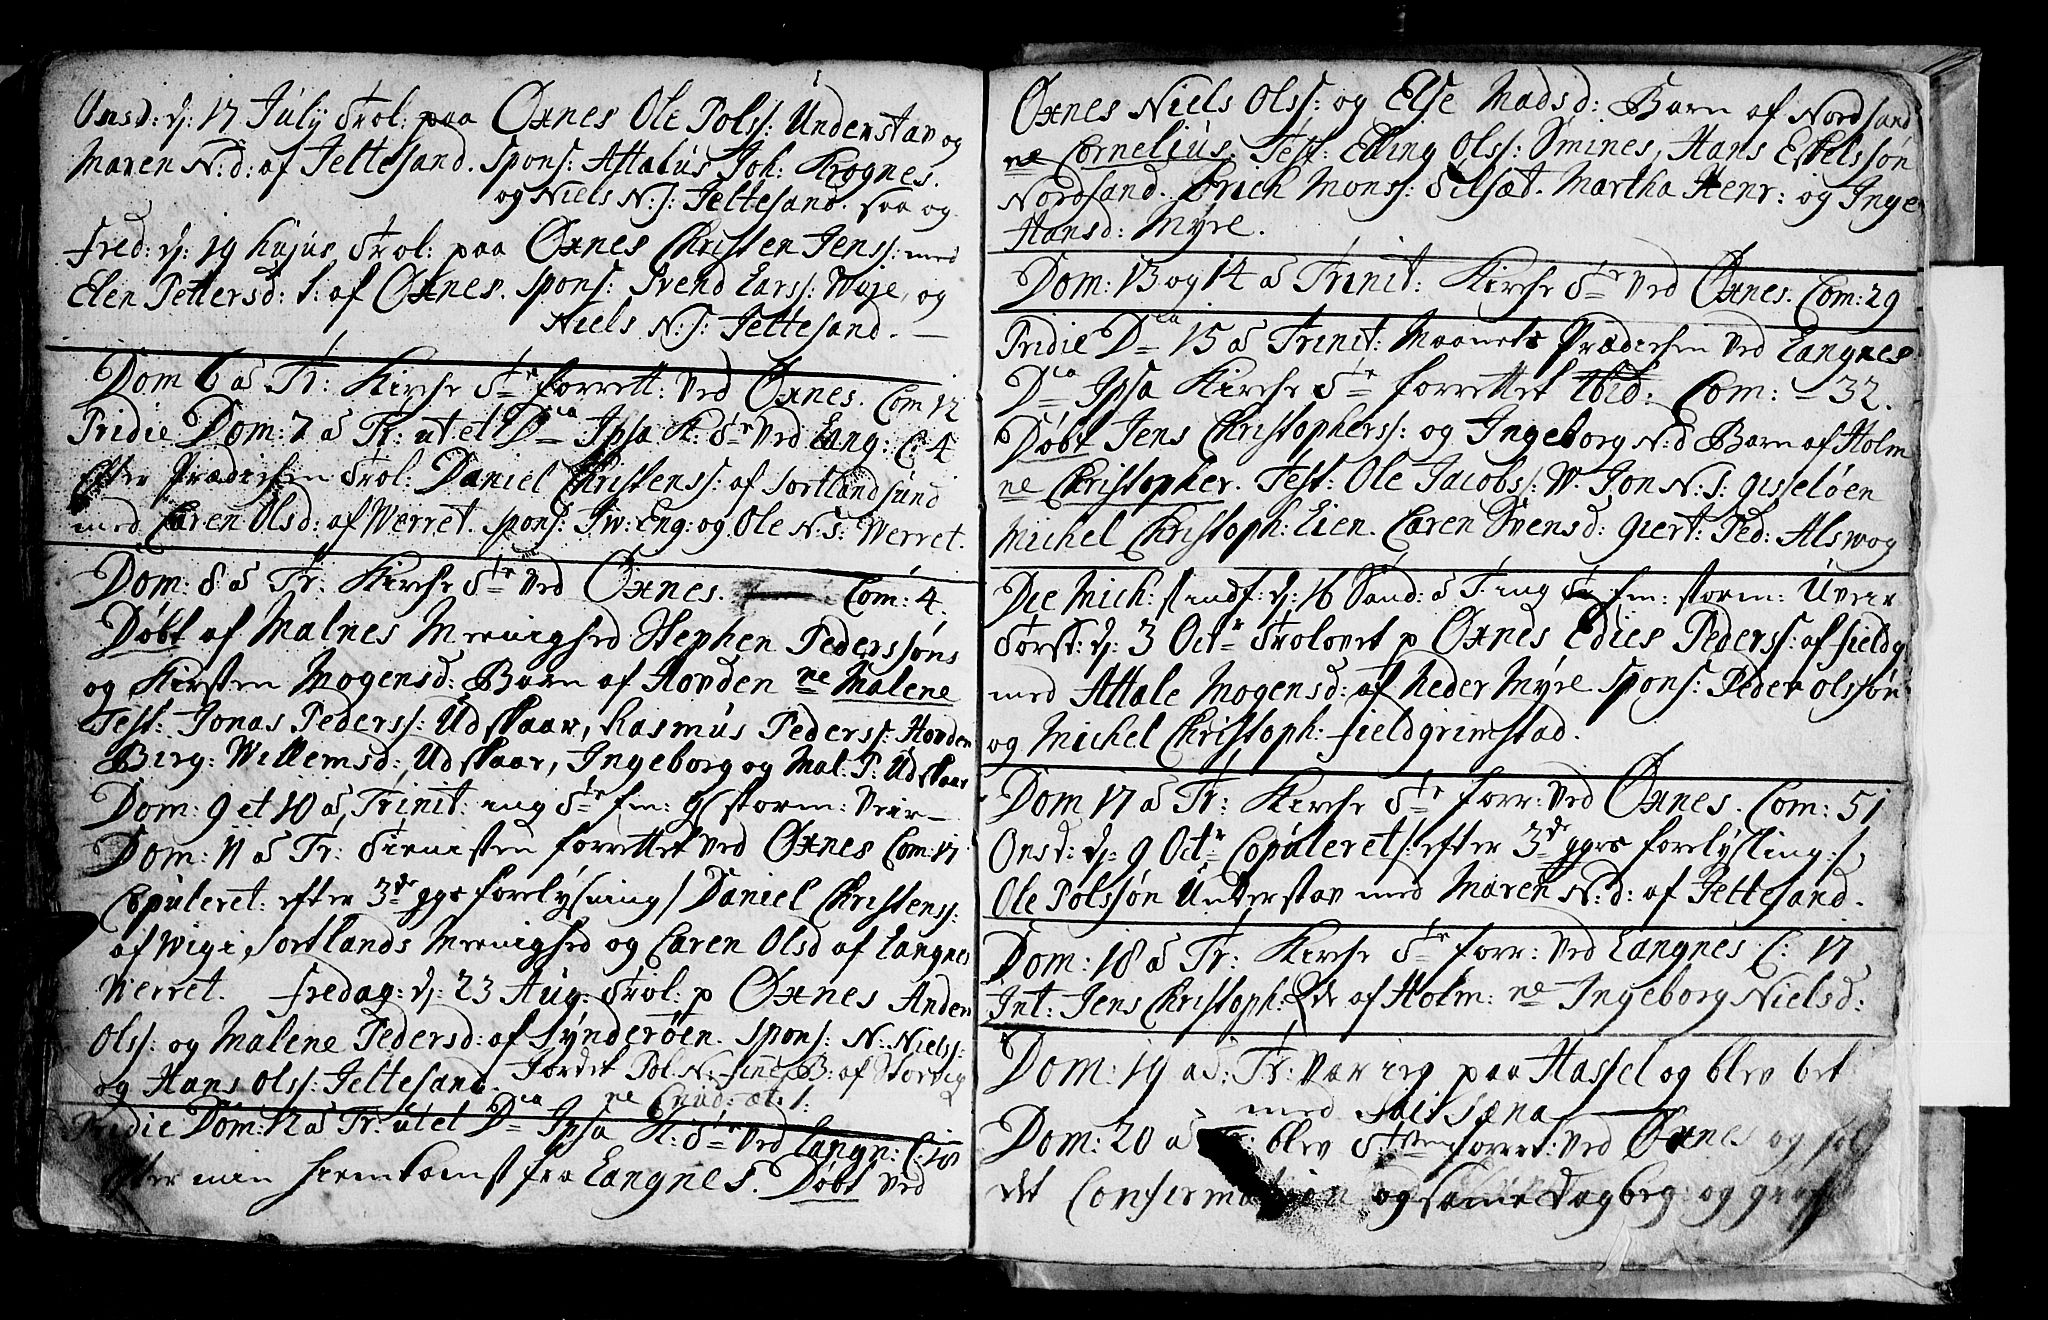 Onsd: d: 17 July Trol: paa Øxnes Ole Polss: Understav og
Maren N:d: af Jettesand. Spons: Attalus Joh: Krognes.
og Niels N:S: Jettesand. saa og
Fred: d: 19 hujus Trol: paa Øxnes Christen Jenss: med
Elen Pettersd: af Øxnes. Spons: Svend Larss: og
Niels N:S: Jettesand.
Dom 6 a Tr: Kirche Ste forrett: ved Øxnes. Com 12
Pridie Dom: 7 a Tr: ut et Dca Ipsa K: Ste ved Lang: C: 4
Efter Prædichen Trol: Daniel Christenss: af Sortlandsund
med Caren Olsd: af Werret. Spons: Iw: Eng: og Ole N:S: Werret.
Dom: 8 a Tr: Kirche Ste ved Øxnes. Com: 4.
Døbt af Malnes Meenighed Stephen Pederssøns
og Kirsten Mogensd: Barn af Hovden ne Malene
Test: Jonas Pederss: Udskaar, Rasmus Pederss: Hovden
Birg: Willemsd: Udskaar, Ingeborg og Mal: P: Udskaar
Dom: 9 et 10 a Trinit: ing Ste fm: storm: Veir
Dom: 11 a Tr: Tienisten forrettet ved Øxnes Com: 17
Copuleret: efter 3de ggrs forelysning / Daniel Christenss:
af Wigi, Sortlands Meenighed og Caren Olsd af Langnes
Werret. Fredag: d: 23 Aug: Trol: p Øxnes Anders
Olss: og Malene Pedersd: af Synderøen. Spons: N: Nielss:
og Hans Olss: Jettesand. Jordet Pol: N: Sines B: af Storvig
ne Cnud: æt: 1:
Pridie Dom: 12 a Tr: ut et Dca Ipsa K: Ste ved Langn: C: 18
Efter min hiemkomst fra Langnes. Døbt ved
Øxnes Niels Olss: og Else Madsd: Barn af Nordsand
ne Cornelius. Test: Elling Olss: Smines, Hans Eskelssøn
Nordsand. Erich Monss: Silsæt. Martha Henr: og Inge
Hansd: Myre.
Dom: 13 og 14 a Trinit: Kirche Ste ved Øxnes. Com: 29
Pridie Dca 15 a Trinit: Maanets Prædichen ved Langnes
Dca Ipsa Kirche Ste forrettet Ibid: Com: 32.
Døbt Jens Christopherss: og Ingeborg N:d Barn af Holm
ne Christopher. Test: Ole Jacobs: W. Jon N:S: Gisseløen
Michel Christoph: Eien. Caren Svensd: Giert: Ped: Alswog
Die Mich: indf: d: 16 Sønd: a T: ing Ste fm: storm: Uveir
Torst: d: 3 Octr Trolovet p Øxnes Edies Pederss: af Fieldg
med Attale Mogensd: af Neder Myre Spons: Peder Olssøn
og Michel Christoph: Fieldgrimstad.
Dom 17 a Tr: Kirche Ste forr: ved Øxnes. Com: 51
Onsd: d: 9 Octr Copuleret /: efter 3de ggrs forelysling: /
Ole Polssøn Understav med Maren N:d: af Jettesand.
Dom: 18 a Tr: Kirche Ste forr: ved Langnes C: 17
Int: Jens Christoph: af Holm: ne Ingeborg Nielsd:
Dom: 19 a Tr: var ieg paa Hassel og blev bet
med
Dom: 20 a Tr: blev Sten forret: ved Øxnes og
det Confirmation og samme dag